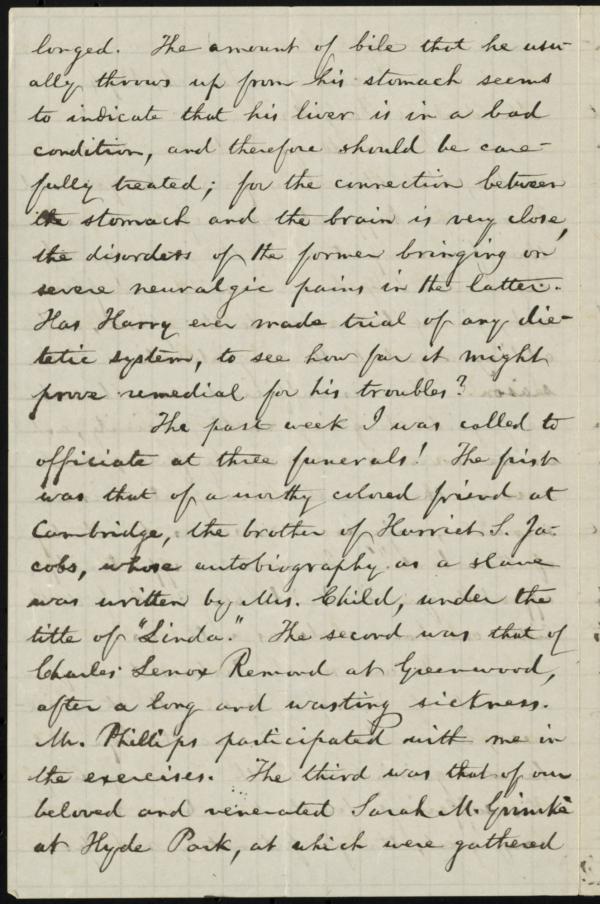 longed. The amount of bile that he usu-
ally throws up from his stomach seems
to indicate that his liver is in a bad
condition, and therefore should be care-
fully treated; for the connection between
the stomach and the brain is very close,
the disorders of the former bringing on
severe neuralgic pains in the latter.
Has Harry ever made trial of any die-
tetic system, to see how far it might
prove remedial for his troubles?
The past week I was called to
officiate at three funerals! The first
was that of a worthy colored friend at
Cambridge, the brother of Harriet S. Ja-
cobs, whose autobiography as a slave
was written by Mrs. Child, under the
title of "Linda." The second was that of
Charles Lenox Remond at Greenwood,
after a long and wasting sickness.
Mr. Phillips participated with me in
the exercises. The third was that of our
beloved and venerated Sarah M. Grimké
at Hyde Park, at which were gathered